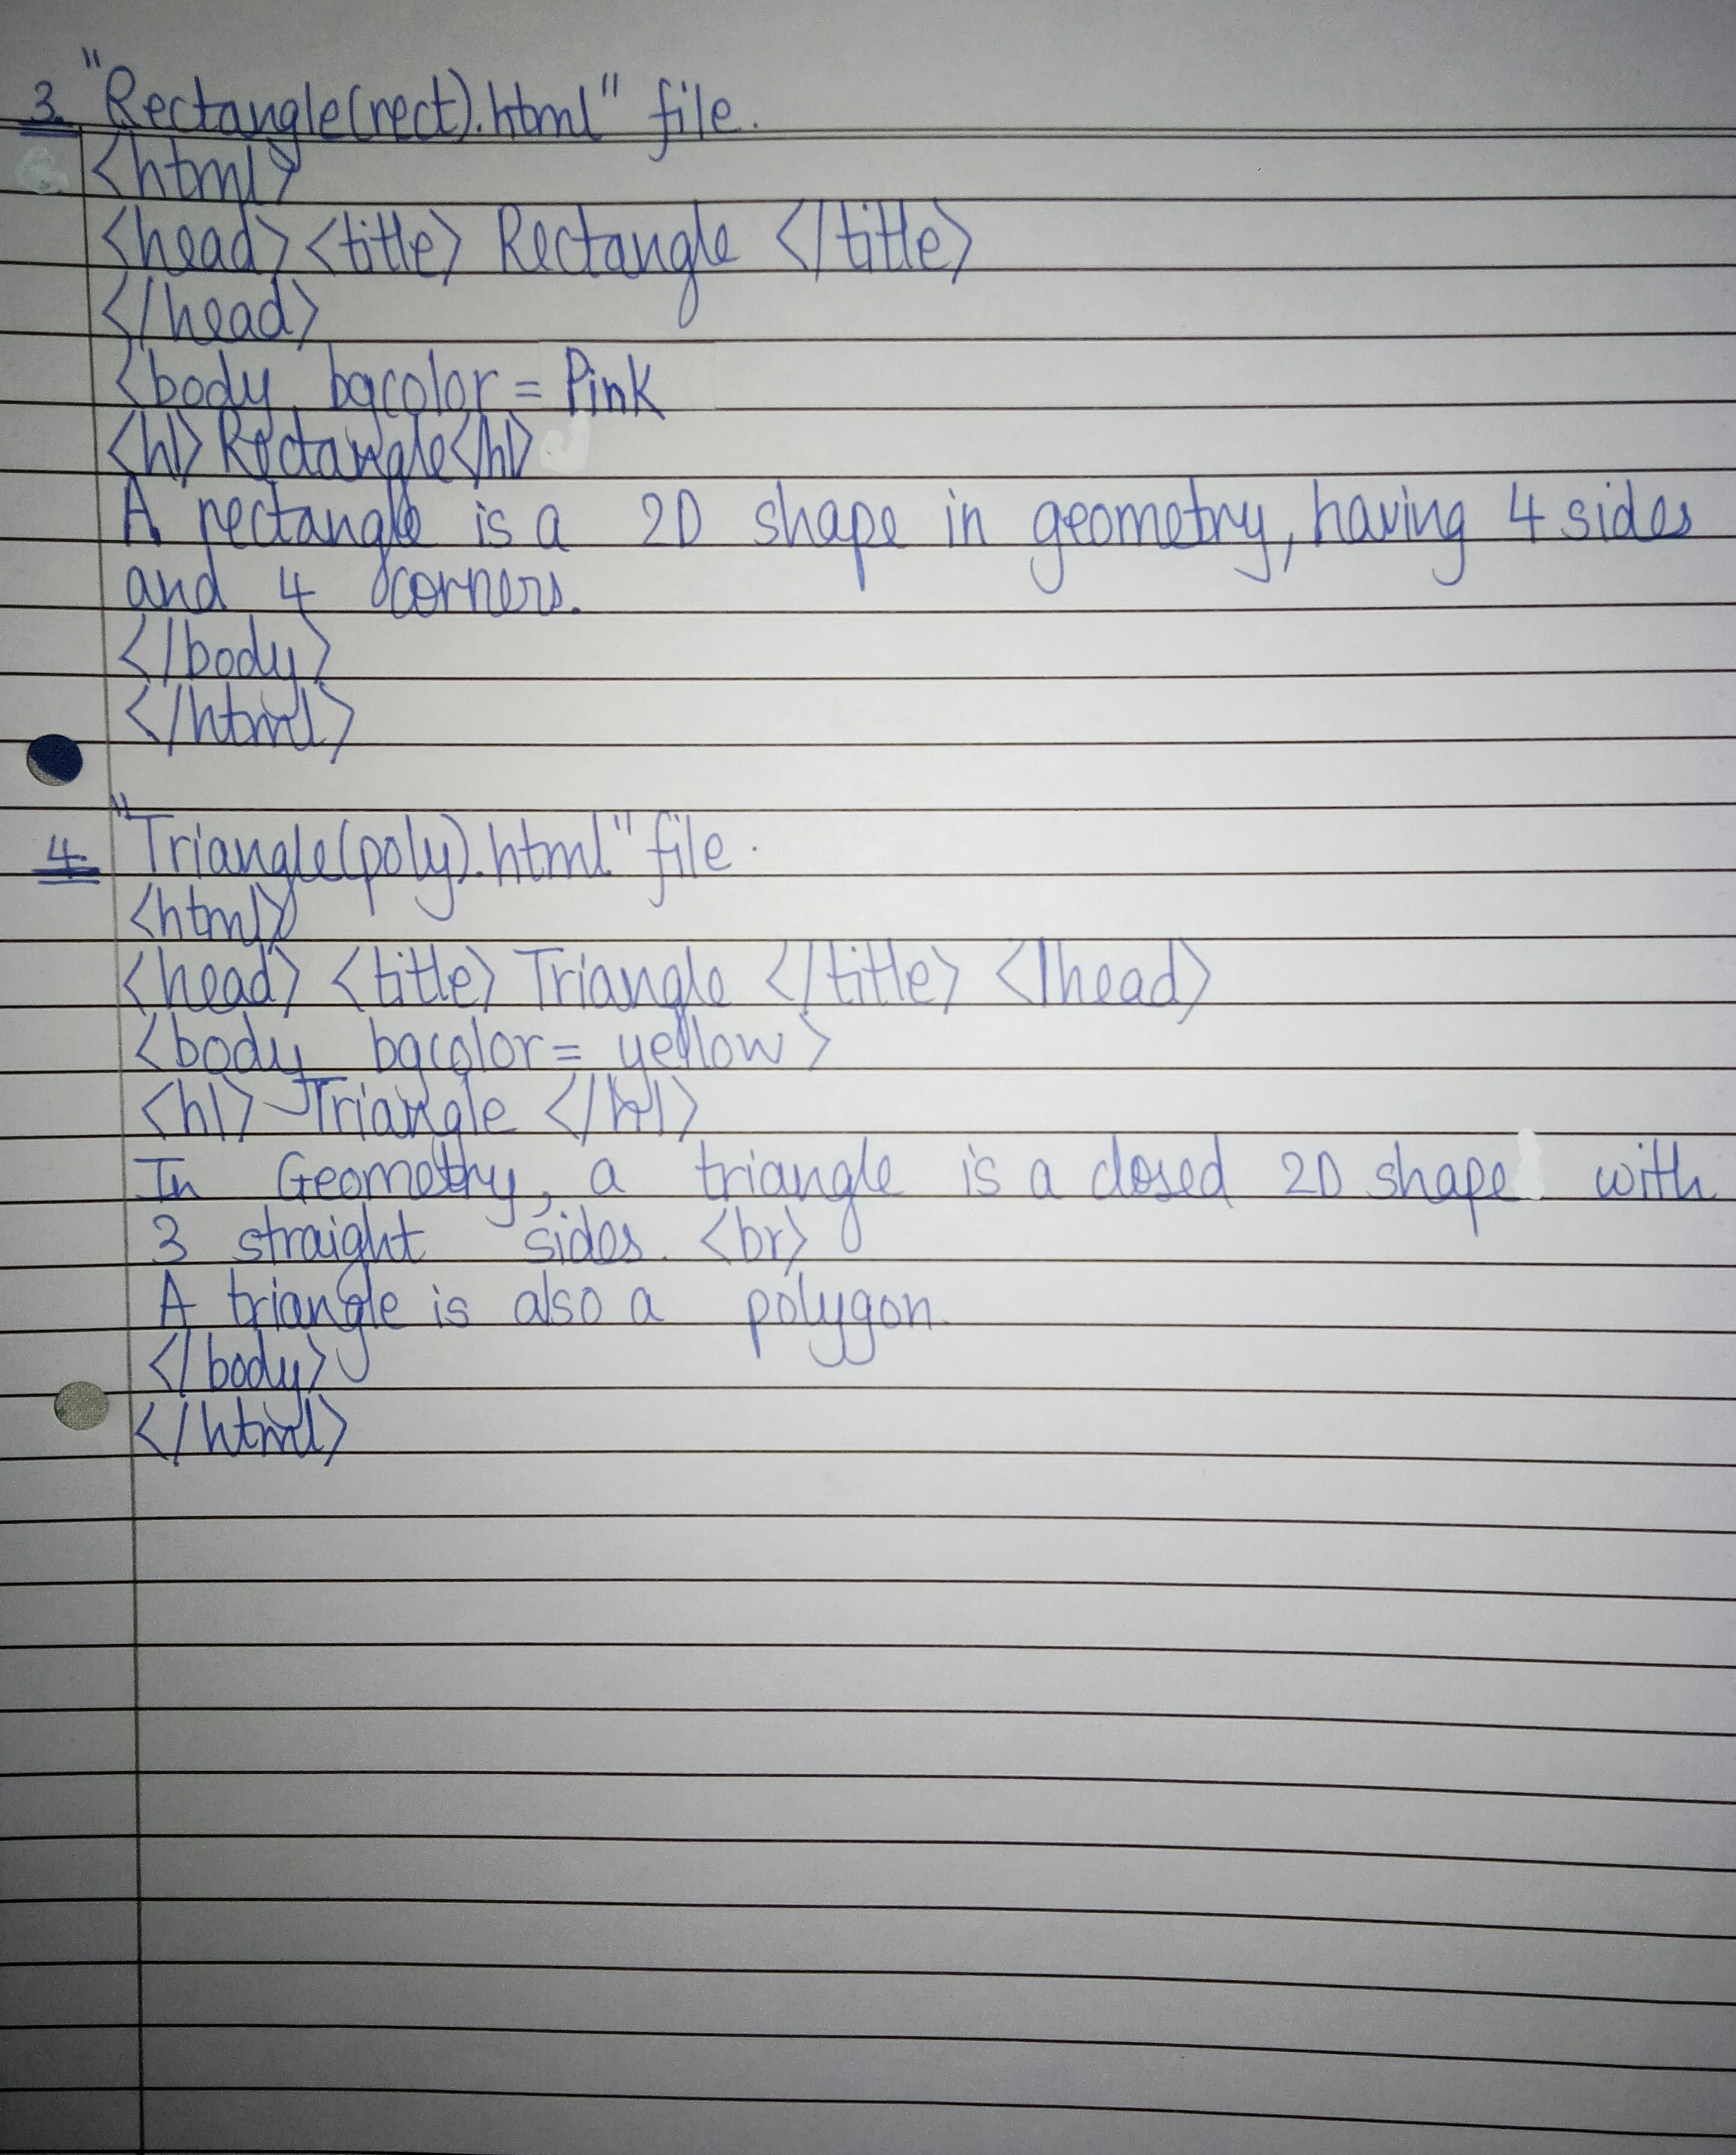 3. "Rectangle(rect).html" file.
<html>
<head><title> Rectangle </title>
</head>
<body bgcolor = Pink
<h1> Rectangle</h1>
A rectangle is a 2D shape in geometry, having 4 sides
and 4 corners.
</body>
</html>
4. "Triangle(poly).html" file.
<html>
<head> <title> Triangle </title> </head>
<body bgcolor = yellow>
<h1> Triangle </h1>
In Geometry, a triangle is a closed 2D shape with
3 straight sides. <br>
A triangle is also a polygon.
</body>
</html>